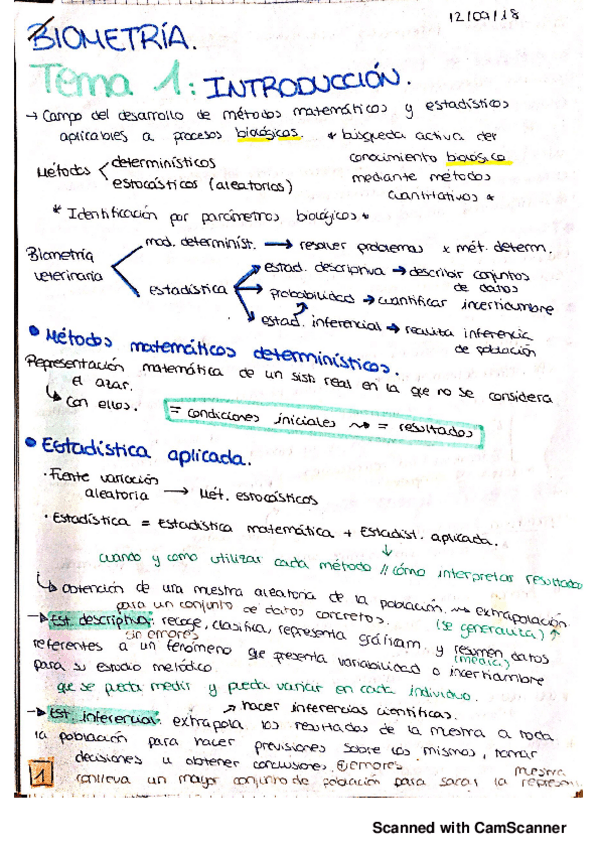 12/09/18
BIOMETRÍA.
Tema 1: INTRODUCCIÓN.
→ Campo del desarrollo de métodos matemáticos y estadísticos
aplicables a procesos biológicos. * búsqueda activa del
conocimiento biológico
mediante métodos
cuantitativos *
Métodos < determinísticos
estocásticos (aleatorios)
* Identificación por parámetros biológicos *
Biometría veterinaria
mod. determinist. → resolver problemas x mét. determ.
estadística
estad. descriptiva → describir conjuntos
de datos
probabilidad → cuantificar incertidumbre
estad. inferencial → realiza inferencia
de población
• Métodos matemáticos determinísticos.
Representación matemática de un sist. real en la que no se considera
el azar.
↳ Con ellos. = condiciones iniciales ⇝ = resultados
• Estadística aplicada.
· Fuente variación
aleatoria → Mét. estocásticos
· Estadística = Estadística matemática + Estadist. aplicada.
↓
cuando y como utilizar cada método // cómo interpretar resultados
↳ Obtención de una muestra aleatoria de la población. ⇝ extrapolación
para un conjunto de datos concretos. (se generaliza) ↑
→ Est. descriptiva: recoge, clasifica, representa gráficam. y resumen datos
sin errores (medic.)
referentes a un fenómeno que presenta variabilidad o incertidumbre
para su estudio metódico.
que se pueda medir y pueda variar en cada individuo.
↗ hacer inferencias científicas.
→ Est. inferencial: extrapola los resultados de la muestra a toda
la población para hacer previsiones sobre los mismos, tomar
decisiones u obtener conclusiones. ⊕ errores
muestra
1 conlleva un mayor conjunto de población para sacar la
Scanned with CamScanner